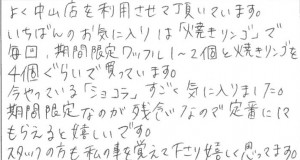 よく中山店を利用させて頂いています。
いちばんのお気に入りは「焼きリンゴ」で
毎回、期間限定ワッフル1〜2個と焼きリンゴを
4個ぐらいで買っています。
今やっている「ショコラ」すごく気に入りました。
期間限定なのが残念なので定番にして
もらえると嬉しいです。
スタッフの方も私の事を覚えて下さり嬉しく思ってます。